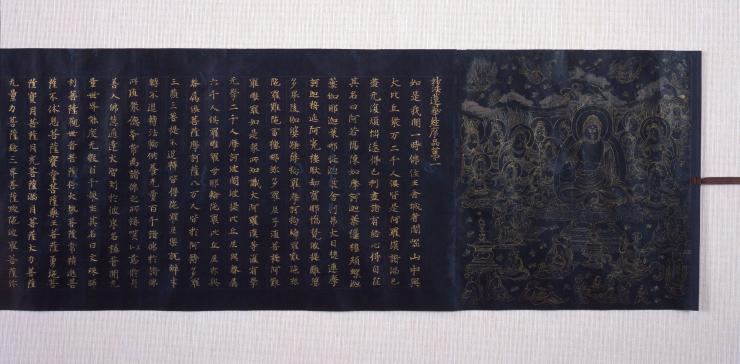 妙法蓮華經序品第一
如是我聞一時佛住王舍城耆闍崛山中與
大比丘衆万二千人俱皆是阿羅漢諸漏已
盡无復煩惱逮得己利盡諸有結心得自在
其名曰阿若憍陳如摩訶迦葉優樓頻螺迦
葉伽耶迦葉那提迦葉舍利弗大目揵連摩
訶迦旃延阿㝹樓馱劫賓那憍梵波提離婆
多畢陵伽婆蹉薄拘羅摩訶拘絺羅難陀孫
陀羅難陀富樓那彌多羅尼子須菩提阿難
羅睺羅如是衆所知識大阿羅漢等復有學
无學二千人摩訶波闍波提比丘尼與眷屬
六千人俱羅睺羅母耶輸陀羅比丘尼亦與
眷屬俱菩薩摩訶薩八万人皆於阿耨多羅
三藐三菩提不退轉皆得陀羅尼樂說辯才
轉不退轉法輪供養无量百千諸佛於諸佛
所殖衆德本常爲諸佛之所稱歎以慈修身
善入佛慧通達大智到於彼岸名稱普聞无
量世界能度无數百千衆生其名曰文殊師
利菩薩觀世音菩薩得大勢菩薩常精進菩
薩不休息菩薩寶掌菩薩藥王菩薩勇施菩
薩寶月菩薩月光菩薩滿月菩薩大力菩薩
无量力菩薩越三界菩薩跋陀婆羅菩薩弥